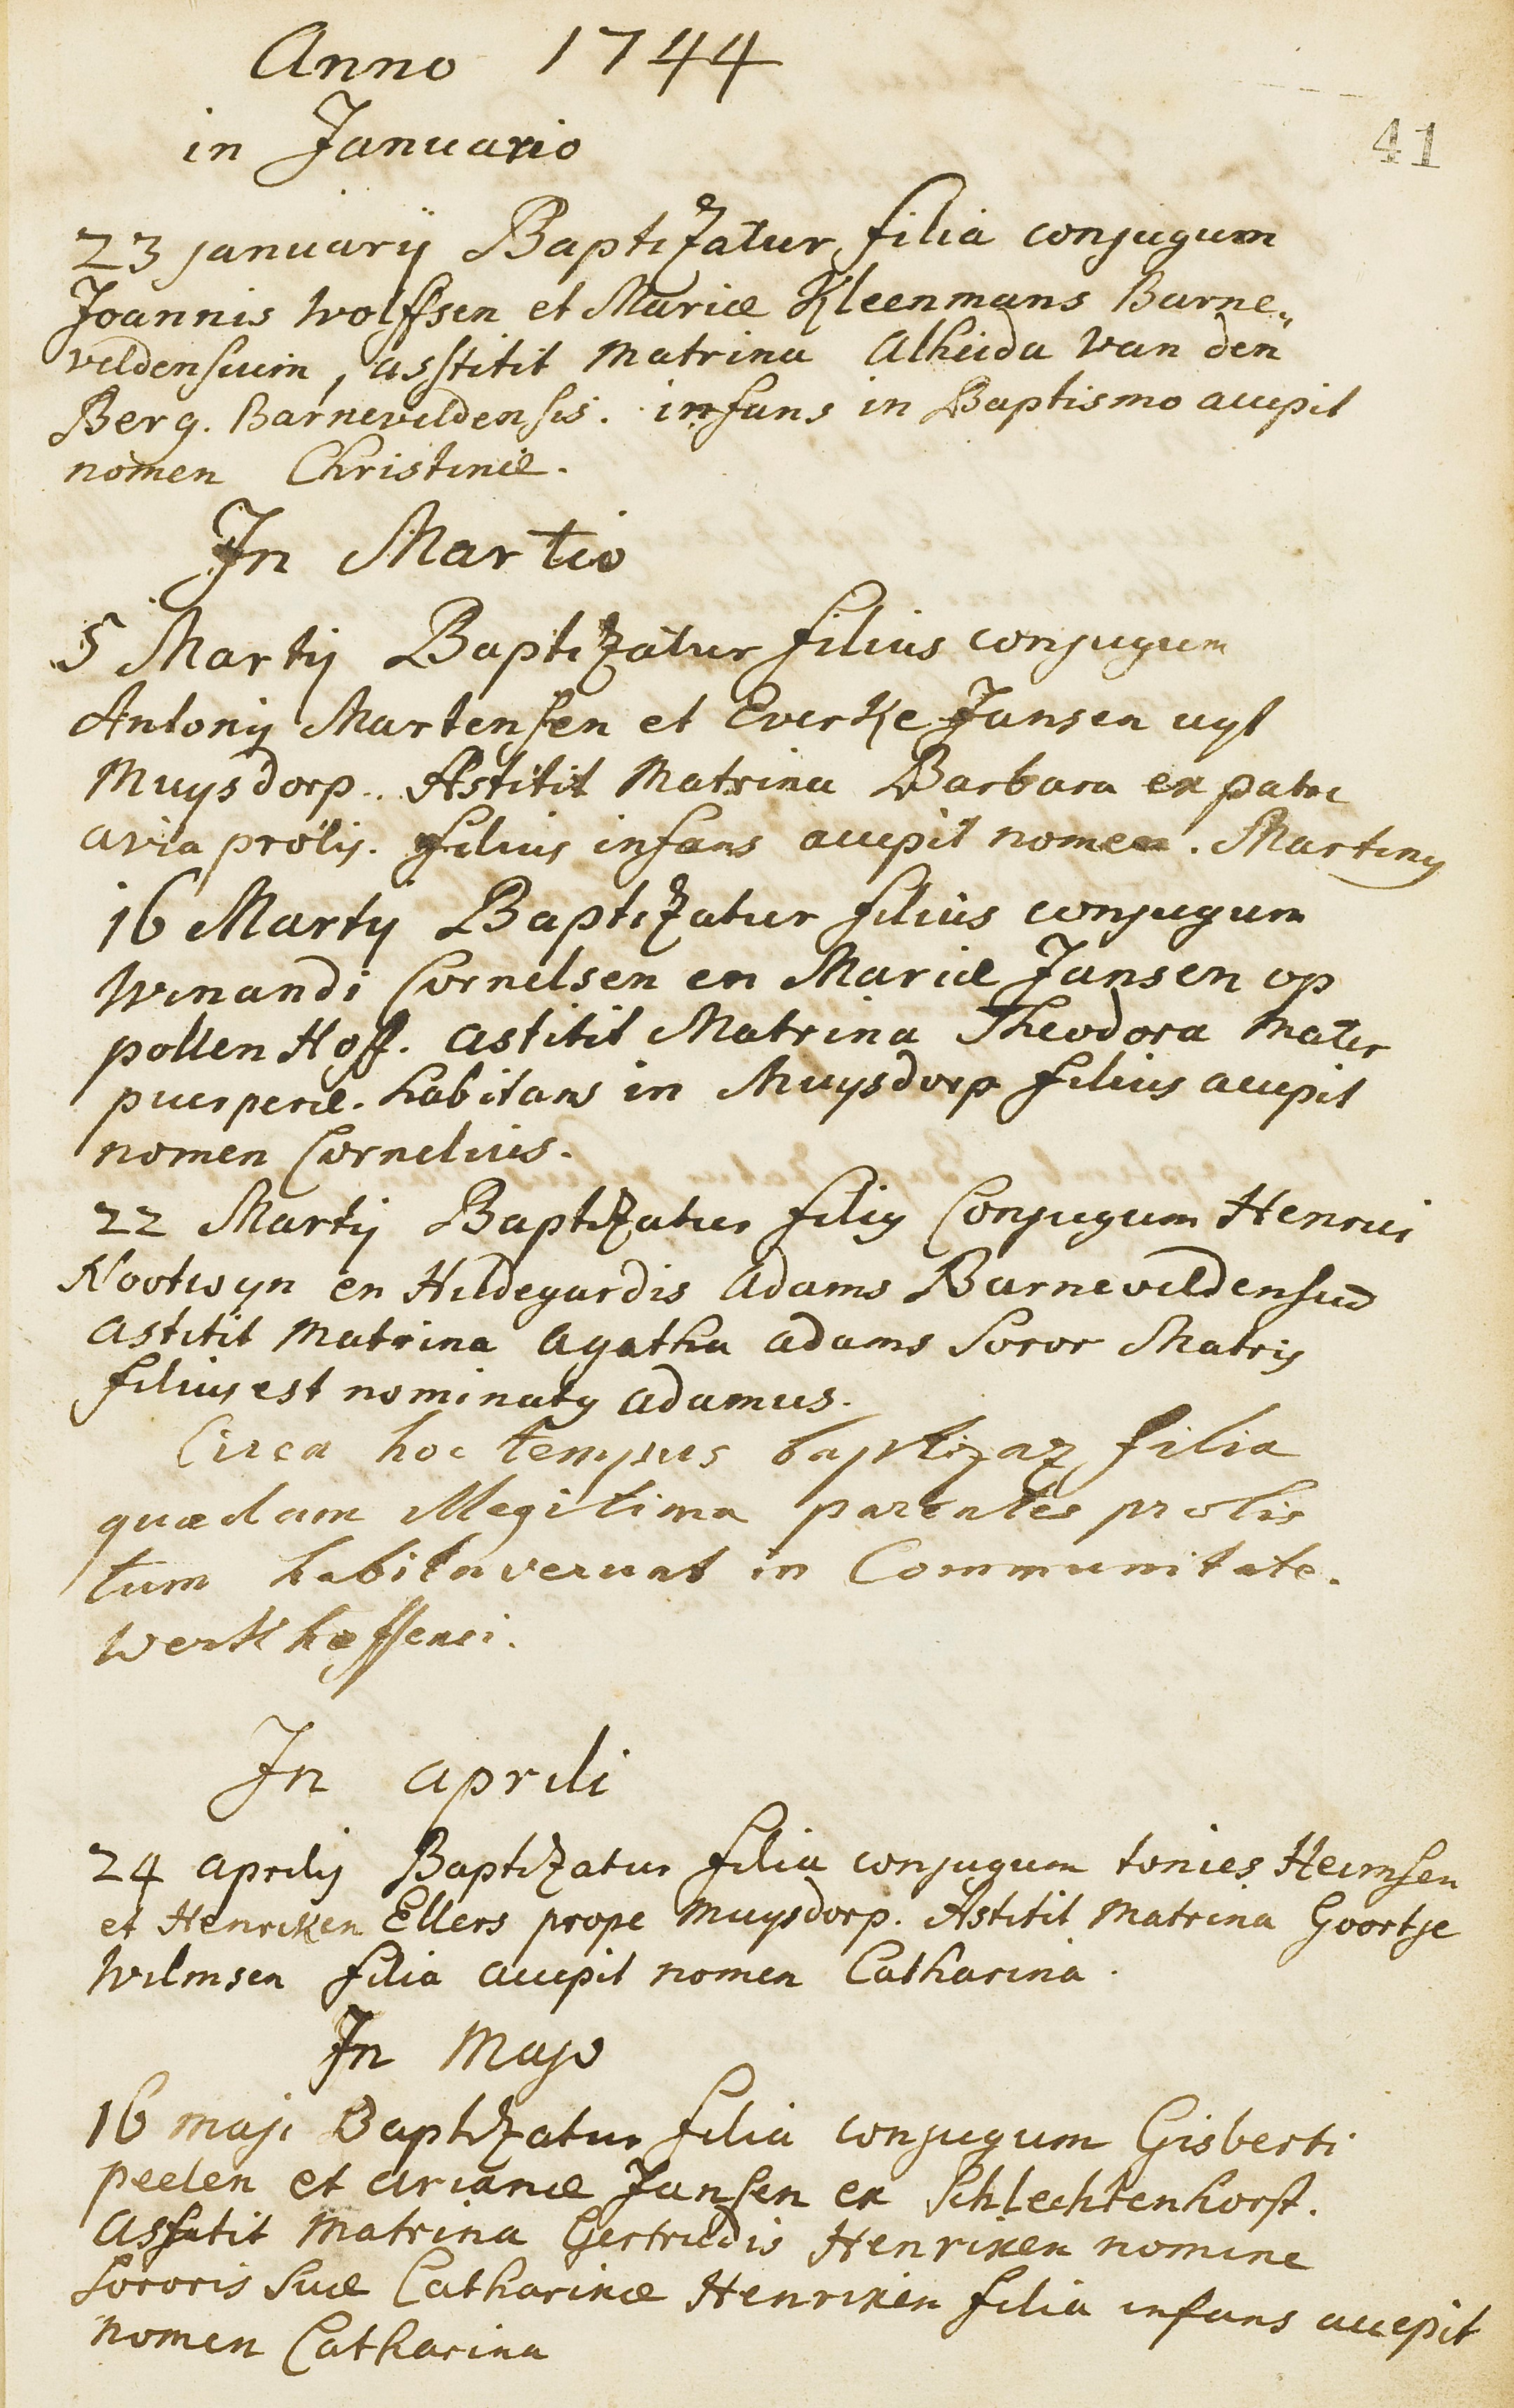 Anno 1744
in Januario
41
23 januarij Baptizatur filia conjugum
Joannis Wolffsen et Mariæ Kleenmans Barne„
veldensium, asstitit Matrina Alheida van den
Berg. Barneveldensis. infans in Baptismo accepit
nomen Christinæ.
In Martio
5 Martij Baptizatur filius conjugum
Antonij Martensen et Everke Jansen uyt
Muysdorp. Astitit Matrina Barbara ex patre
avia prolis. filius infans accepit nomen. Martiny
16 Martij Baptizatur filius conjugum
Winandi Cornelsen en Mariæ Jansen op
pollen Hoff. astitit Matrina Theodora Mater
puerperæ. habitans in Muysdorp filius accepit
nomen Cornelius.
22 Martij Baptizatur filiy Conjugum Henrici
Nootwyn en Hildegardis Adams Barneveldensiū
astitit Matrina Agatha Adams Soror Matris
filius est nominaty Adamus.
Circa hoc tempus baptizaz filia
quædam illegitima parentes prolis
tum habitaverunt in Communitate.
Werkhoffensi.
In aprili
24 aprilis Baptizatur filia conjugum tonies Heimsen
et Henriken Ellers prope Muysdorp. Astitit Matrina Goortje
Wilmsen filia accepit nomen Catharina.
In Majo
16 maji Baptizatur filia conjugum Gisberti
peelen et arianæ Jansen ex Schlechtenhorst.
asstitit Matrina Gertrudis Henriken nomine
Sororis suæ Catharinæ Henriken filia infans accepit
nomen Catharina